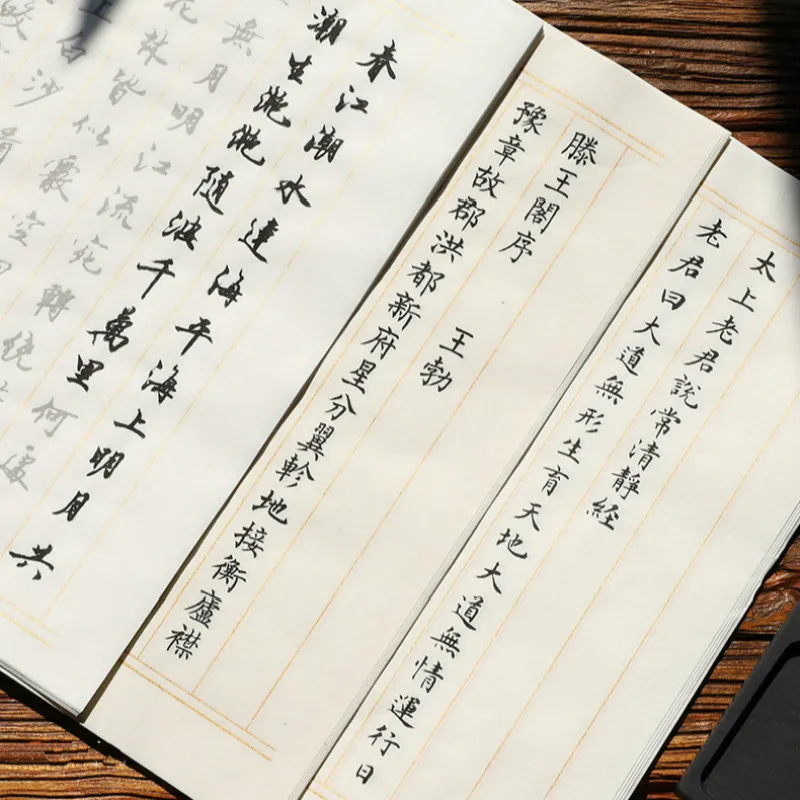 太上老君說常清靜経
老君曰大道無形生育天地大道無情運行日
滕王閣序
王勃
豫章故郡洪都新府星分翼軫地接衡廬襟
春江潮水連海平海上明月共
潮生滟滟隨波千萬里何處
無月明江流宛轉繞
花林皆似霰空
上白沙看
皎